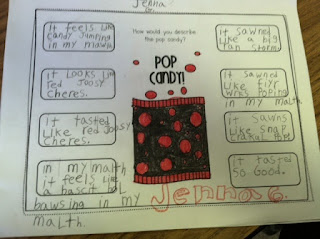 Jenna
How would you describe
the pop candy?
POP
CANDY!
It feels like
candy Jumping
in my mawth
It LOOKS Like
red JOOSY
Cheres.
It tasted
Like red JOOSY
Cheres.
in my malth
it feels like
a bascit bol
bawsing in my
malth.
It sawned
Like a big
ran storm.
It sawned
Like fiyr
wrks poping
in my malth
It sawns
Like snap
crakal Pop.
It tastd
so Good.
Jenna G.